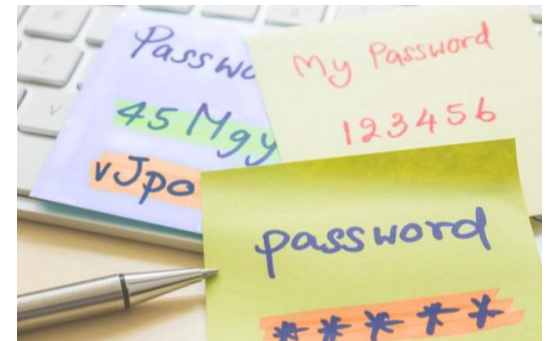 45Mgy
vJpo
My Password
123456
password
*****